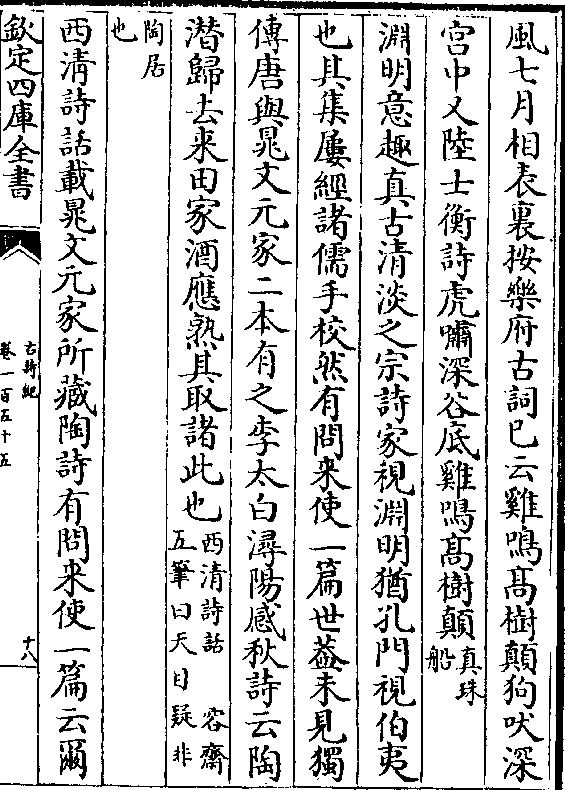 風七月相表裏按樂府古詞已云雞鳴髙樹顛狗吠深
宫中又陸士衡詩虎嘯深谷底雞鳴髙樹顛真珠
船
淵明意趣真古清淡之宗詩家視淵明猶孔門視伯夷
也其集屢經諸儒手校然有問来使一篇世葢未見獨
傳唐與晁文元家二本有之李太白潯陽感秋詩云陶
潜歸去来田家酒應熟其取諸此也西清詩話 容齋
五筆曰天目疑非
陶居
也
西清詩話載晁文元家所藏陶詩有問来使一篇云爾
欽定四庫全書
古詩紀
卷一百五十五
十八